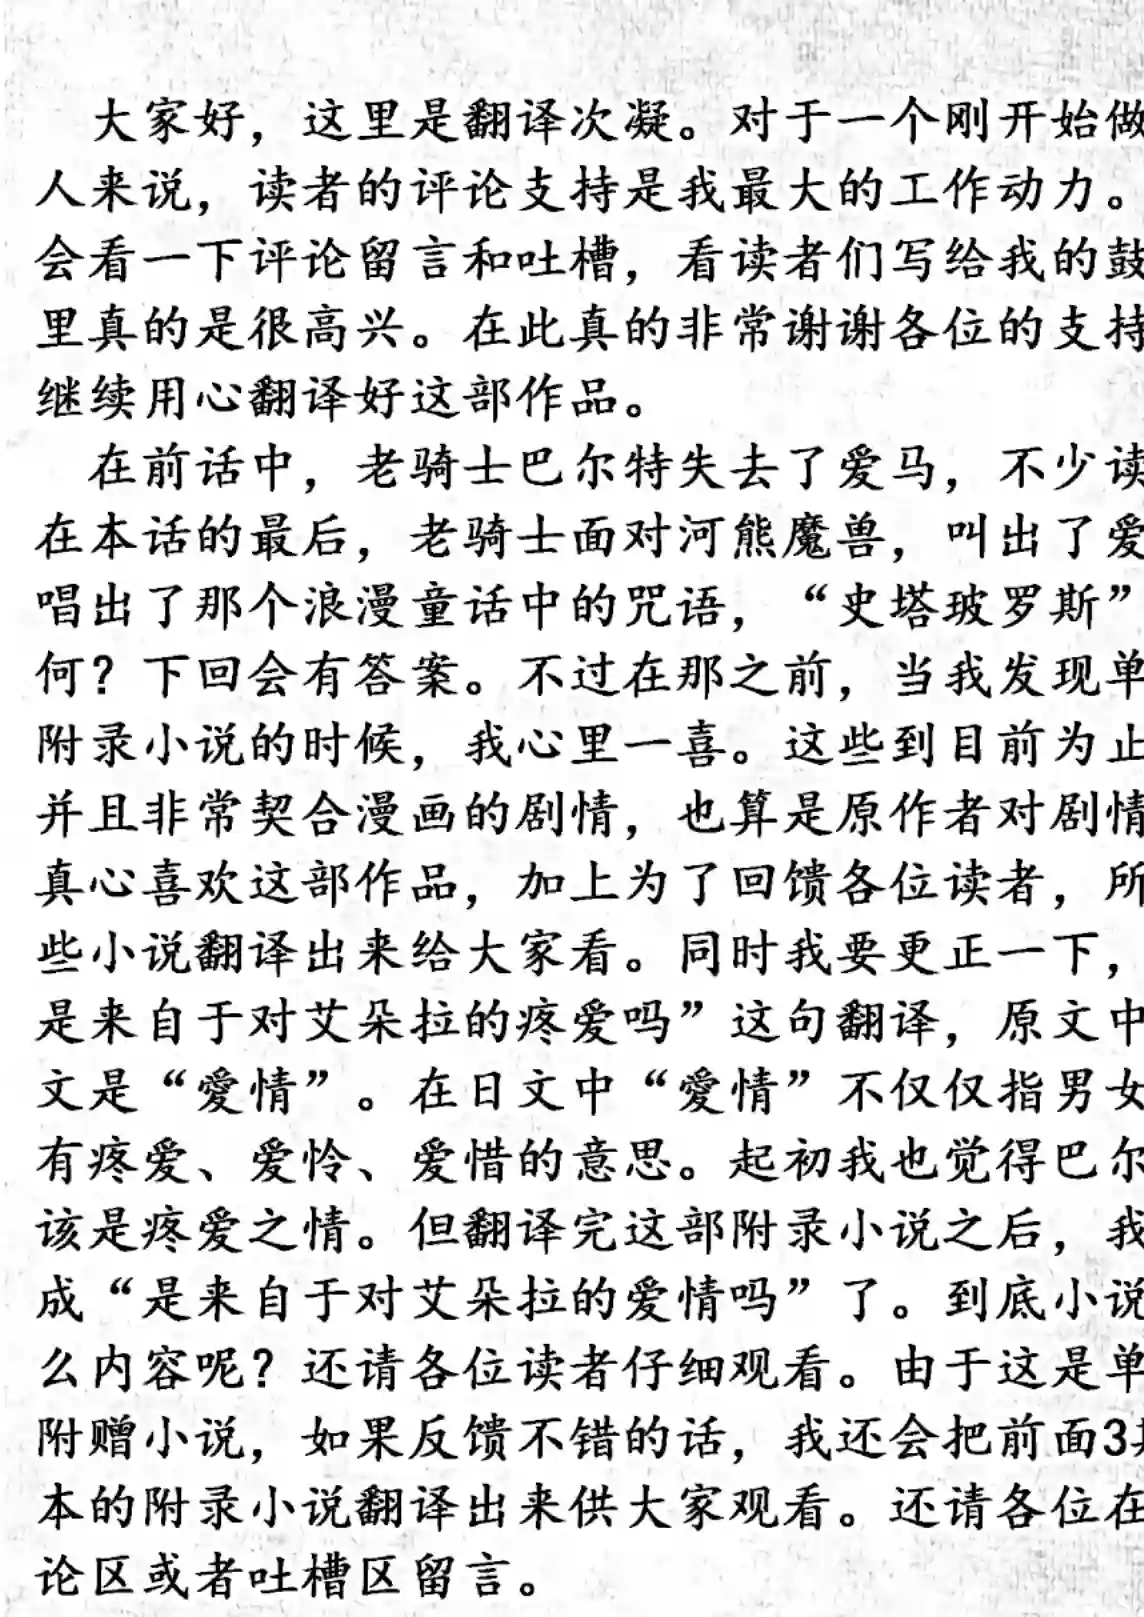 大家好，这里是翻译次凝。对于一个刚开始做
人来说，读者的评论支持是我最大的工作动力。
会看一下评论留言和吐槽，看读者们写给我的鼓
里真的是很高兴。在此真的非常谢谢各位的支持
继续用心翻译好这部作品。
在前话中，老骑士巴尔特失去了爱马，不少读
在本话的最后，老骑士面对河熊魔兽，叫出了爱
唱出了那个浪漫童话中的咒语，“史塔玻罗斯”
何？下回会有答案。不过在那之前，当我发现单
附录小说的时候，我心里一喜。这些到目前为止
并且非常契合漫画的剧情，也算是原作者对剧情
真心喜欢这部作品，加上为了回馈各位读者，所
些小说翻译出来给大家看。同时我要更正一下，
是来自于对艾朵拉的疼爱吗”这句翻译，原文中
文是“愛情”。在日文中“愛情”不仅仅指男女
有疼爱、爱怜、爱惜的意思。起初我也觉得巴尔
该是疼爱之情。但翻译完这部附录小说之后，我
成“是来自于对艾朵拉的爱情吗”了。到底小说
么内容呢？还请各位读者仔细观看。由于这是单
附赠小说，如果反馈不错的话，我还会把前面3
本的附录小说翻译出来供大家观看。还请各位在
论区或者吐槽区留言。